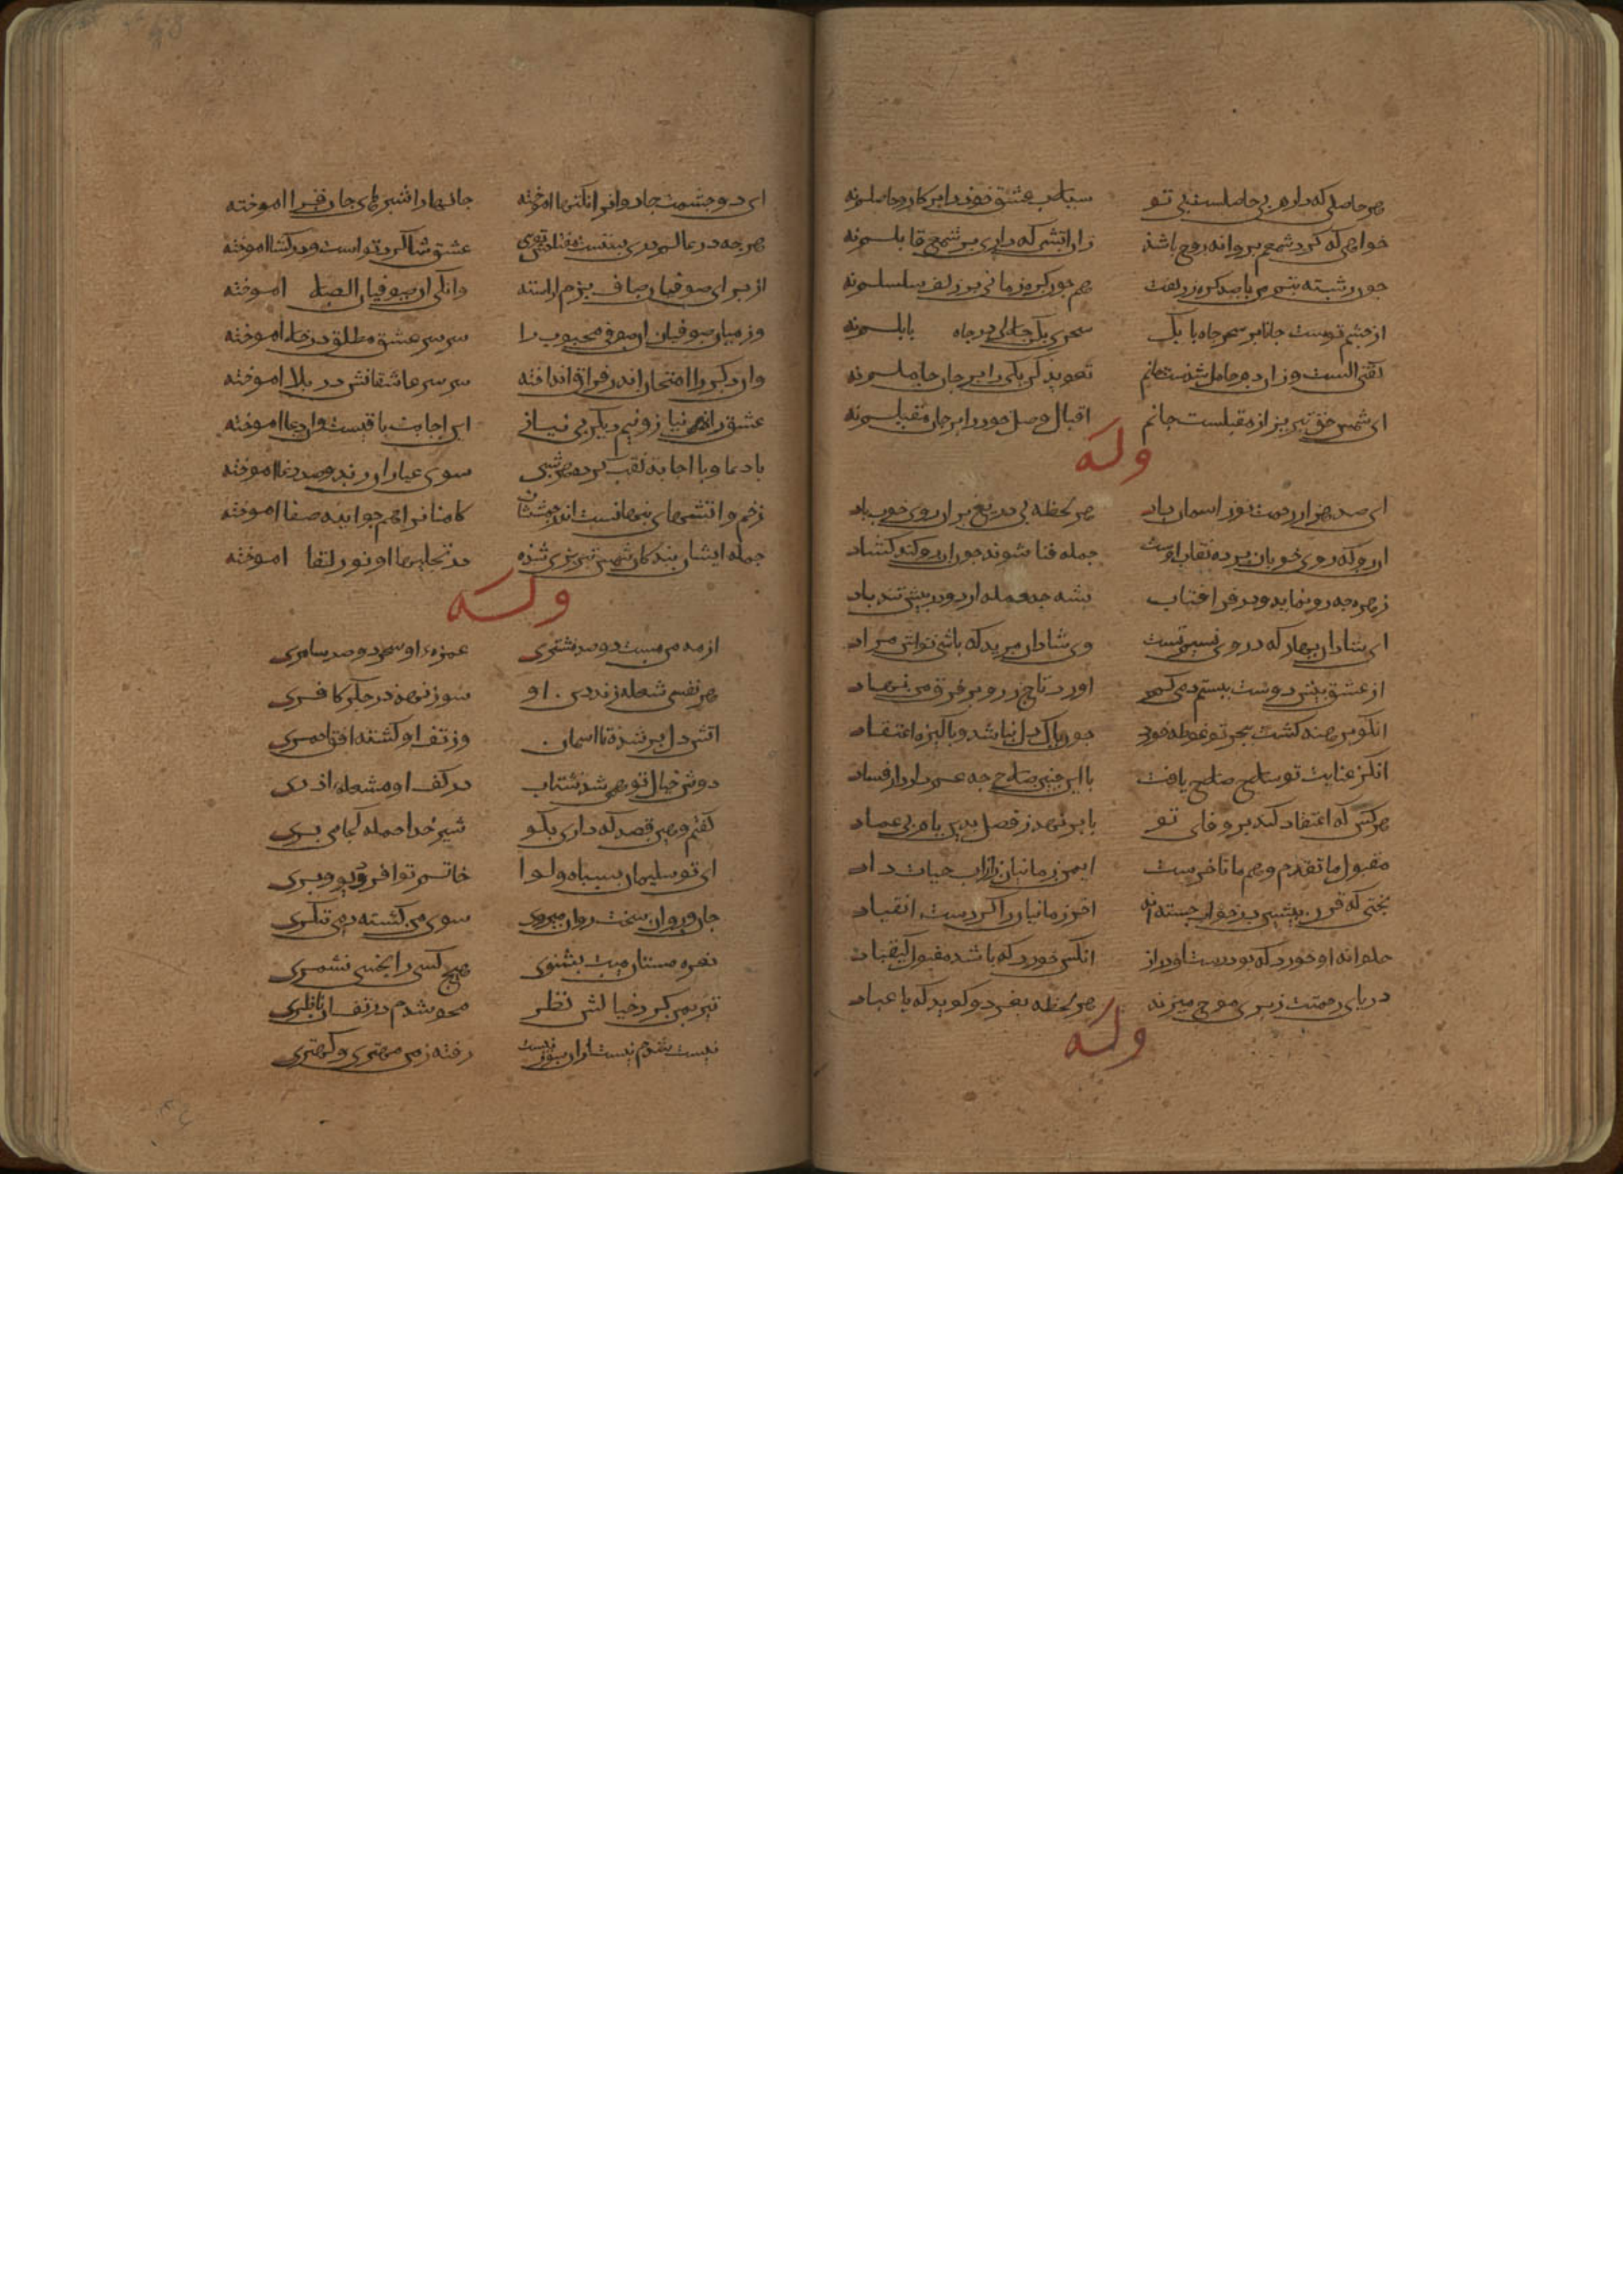 هر حاصلی که دارم بی حاصلست بی تو سیلاب عشق خود را بر کار و حاصلم نه
خواهی که کرد شمعم بروانه روح باشد زان اتشی که داری بر شمع قابلم نه
چون رشته تنم من با صد کره ز زلفت هم چون کره زمانی بر زلف سلسلم نه
از چشم توست جانا بر سحر چاه بابل سحری بکن حلالی در چاه بابلم نه
کفتی الست وزان دم حامل شدست جانم تعوید کن بلی را بر جان حاملم نه
ای شمس حق تبریز از مقبلست جانم اقبال وصل خود را بر جان مقبلم نه
وله
ای صد هزار رحمت نو ز اسمان باد هر لحظه بی دریغ بران روی خوب باد
ان رو که روی خوبان برده نقاب اوست جمله فنا شوند جو ان رو کند کشاد
زهره چه رو نماید در فر افتاب بشه چه حمله ارد در پیش تند باد
ای شادان بهار که در وی نسیم تست وی شادان مرید که باشی تواش مراد
از عشق پیش دوست ببستم دمی کمر اورد تاج زر و بر فرق من نهاد
انکو برهنه کشت ببحر تو غوطه خورد چون پاک دل نباشد و باکیزه اعتقاد
انکز عنایت تو سلاح صلاح یافت با این چنین صلاح چه غم دارد از فساد
هر کس که اعتقاد کند بر وفای تو با بر نهد ز فضل بدین بام بی عماد
مقبول ما تقدم و هم ما تاخرست ایمن ز ما نیان را ز اب حیات داد
بختی که قرن پیشین در خواب جسته اند اخر زمانیان را کردست انقیاد
حلوا نه او خورد که بود دست او دراز انکس خورد که باشد مقبول کیقباد
دریای رحمتت ز پری موج میزند هر لحظه بغرد و کوید که یا عباد
وله
ای دو چشمت جادوان را نکتها اموخته جانها را شیوهای جان فزا اموخته
هر چه در عالم دری بستست مفتاحش توی عشق شاکرد تو است و در کشا اموخته
از برای صوفیان صاف بزم اراسته وانکی ان صوفیان الصلا اموخته
وز میان صوفیان ان صوفی محبوب را سر سر عشق مطلق در خلا اموخته
وان دکر را امتحان اندر فراق انداخته سر سر عاشقانش در بلا اموخته
عشق را نیمی نیاز و نیم دیکر بی نیاز این اجابت یافتست وان دعا اموخته
با دعا و با اجابت نقب کرده هر شبی سوی عیاران رند و صد دغا اموخته
زخم و اتشهای پنهانست اندر چشمشان کاهنان را همچو ایینه صفا اموخته
جمله ایشان بندکان شمس تبریزی شده در تجلیها او نور لقا اموخته
وله
از مه من مست دو صد مشتری غمزه او سحر دو صد سامری
هر نفسی شعله زند دین او سوز نهد در جکر کافری
اتش دل بر شده تا اسمان وز تف او کشته افق احمری
دوش خیال تو همی شد شتاب در کف او مشعله اذری
کفتم و هین قصد که داری بکو شیر خدا حمله کجا می بری
ای تو سلیمان بسپاه و لوا خاتم تو افسر دیو و پری
جان و روان سخت روان میروی سوی من کشته دمی ننکری
نعره مستان میت بشنوی هیچ کسی را بخسی نشمری
تیز بمن کرد خیالش نظر محو شدم در تف ان ناظری
نیست شدم نیست ازان سو نیست رفته ز من مهتری و کهتری